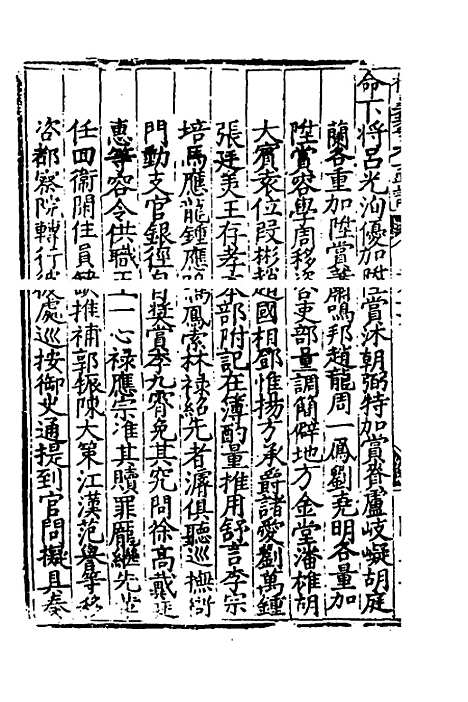 命下將呂光洵優加陞賞沐朝弼特加賞賚盧岐嶷胡庭
蘭各重加陞賞鳴邦趙龍周一鳳劉堯明各量加
陞賞容學周移咨吏部量調簡僻地方金堂潘椎胡
大賓袁位段彬趙國相鄧惟揚方承爵諸愛劉萬鍾
張廷美王存孝本部附記在簿酌量推用舒言李宗
培馬應龍鍾應鳳索林祿紹先者濬俱聽巡撫衙
門動支官銀徑自獎賞李九霄免其究問徐高戴廷
惠等容令供職王一心祿應宗准其贖罪龐繼先
任回衞閑住員缺推補郭振陳大策江漢范譽等移
咨都察院轉行彼處巡按御史通提到官問擬具奏